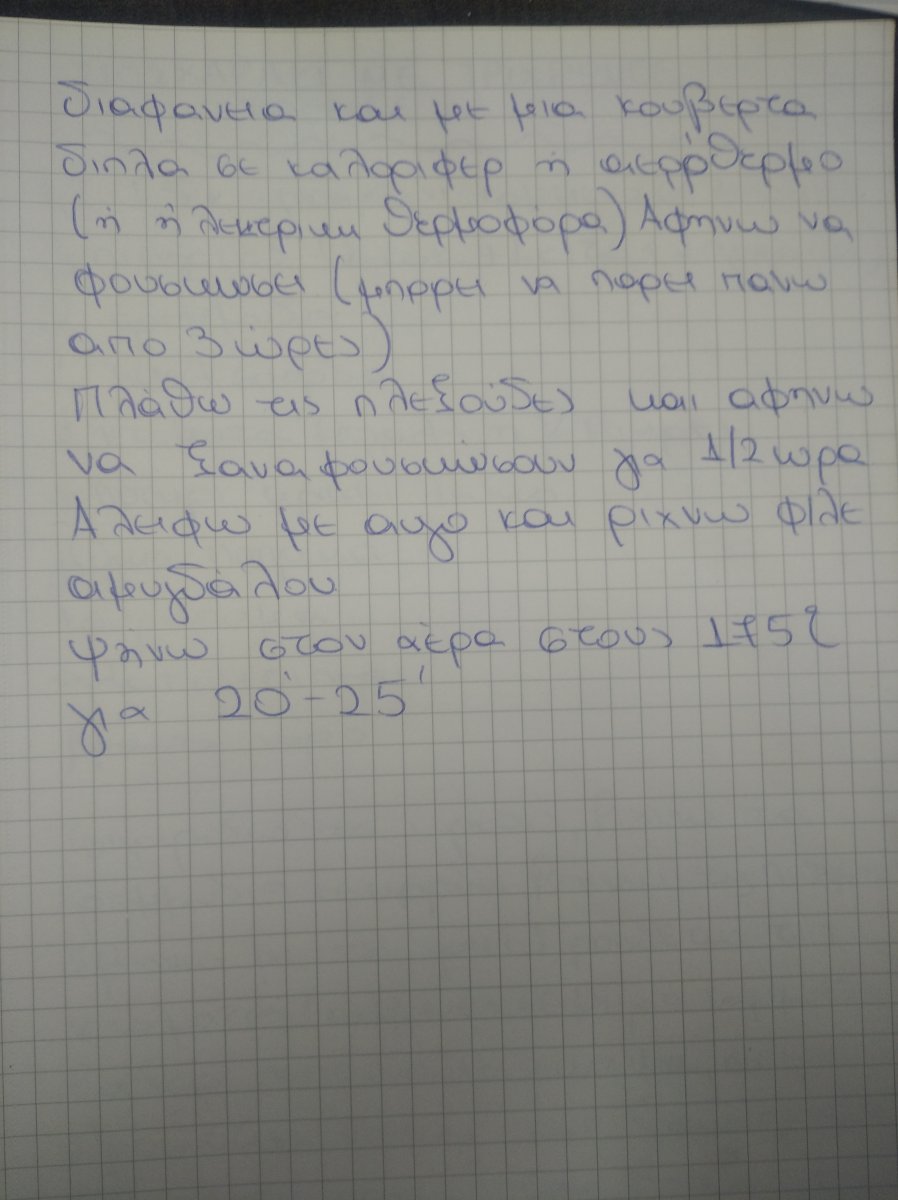 διαφανεια και με μια κουβερτα
διπλα σε καλοριφερ ή αερόθερμο
(ή ήλεκτρικη θερμοφόρα) Αφηνω να
φουσκωσει (μπορει να παρει πανω
απο 3 ώρες)
Πλάθω τις πλεξούδες και αφηνω
να ξαναφουσκώσουν για 1/2 ωρα
Αλειφω με αυγο και ριχνω φιλε
αμυγδάλου
ψήνω στον αέρα στους 175
για 20'-25'